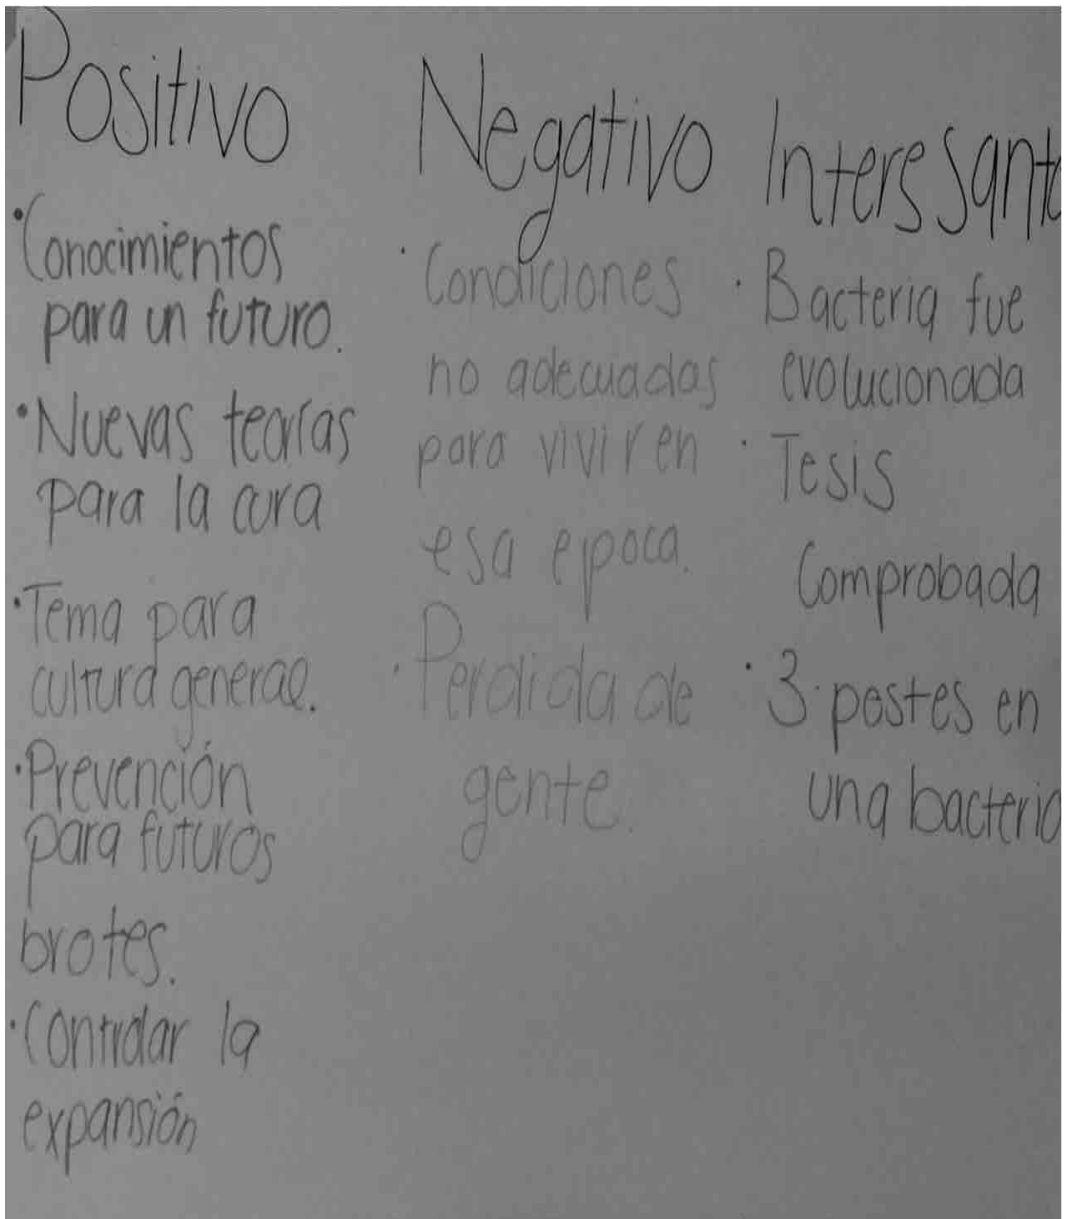 Positivo
• Conocimientos
para un futuro.
• Nuevas teorías
para la cura
• Tema para
cultura general.
• Prevención
para futuros
brotes.
• Controlar la
expansión
Negativo
• Condiciones
no adecuadas
para vivir en
esa epoca.
• Perdida de
gente.
Interesant
• Bacteria fue
evolucionada
• Tesis
Comprobada
• 3 pestes en
una bacteria